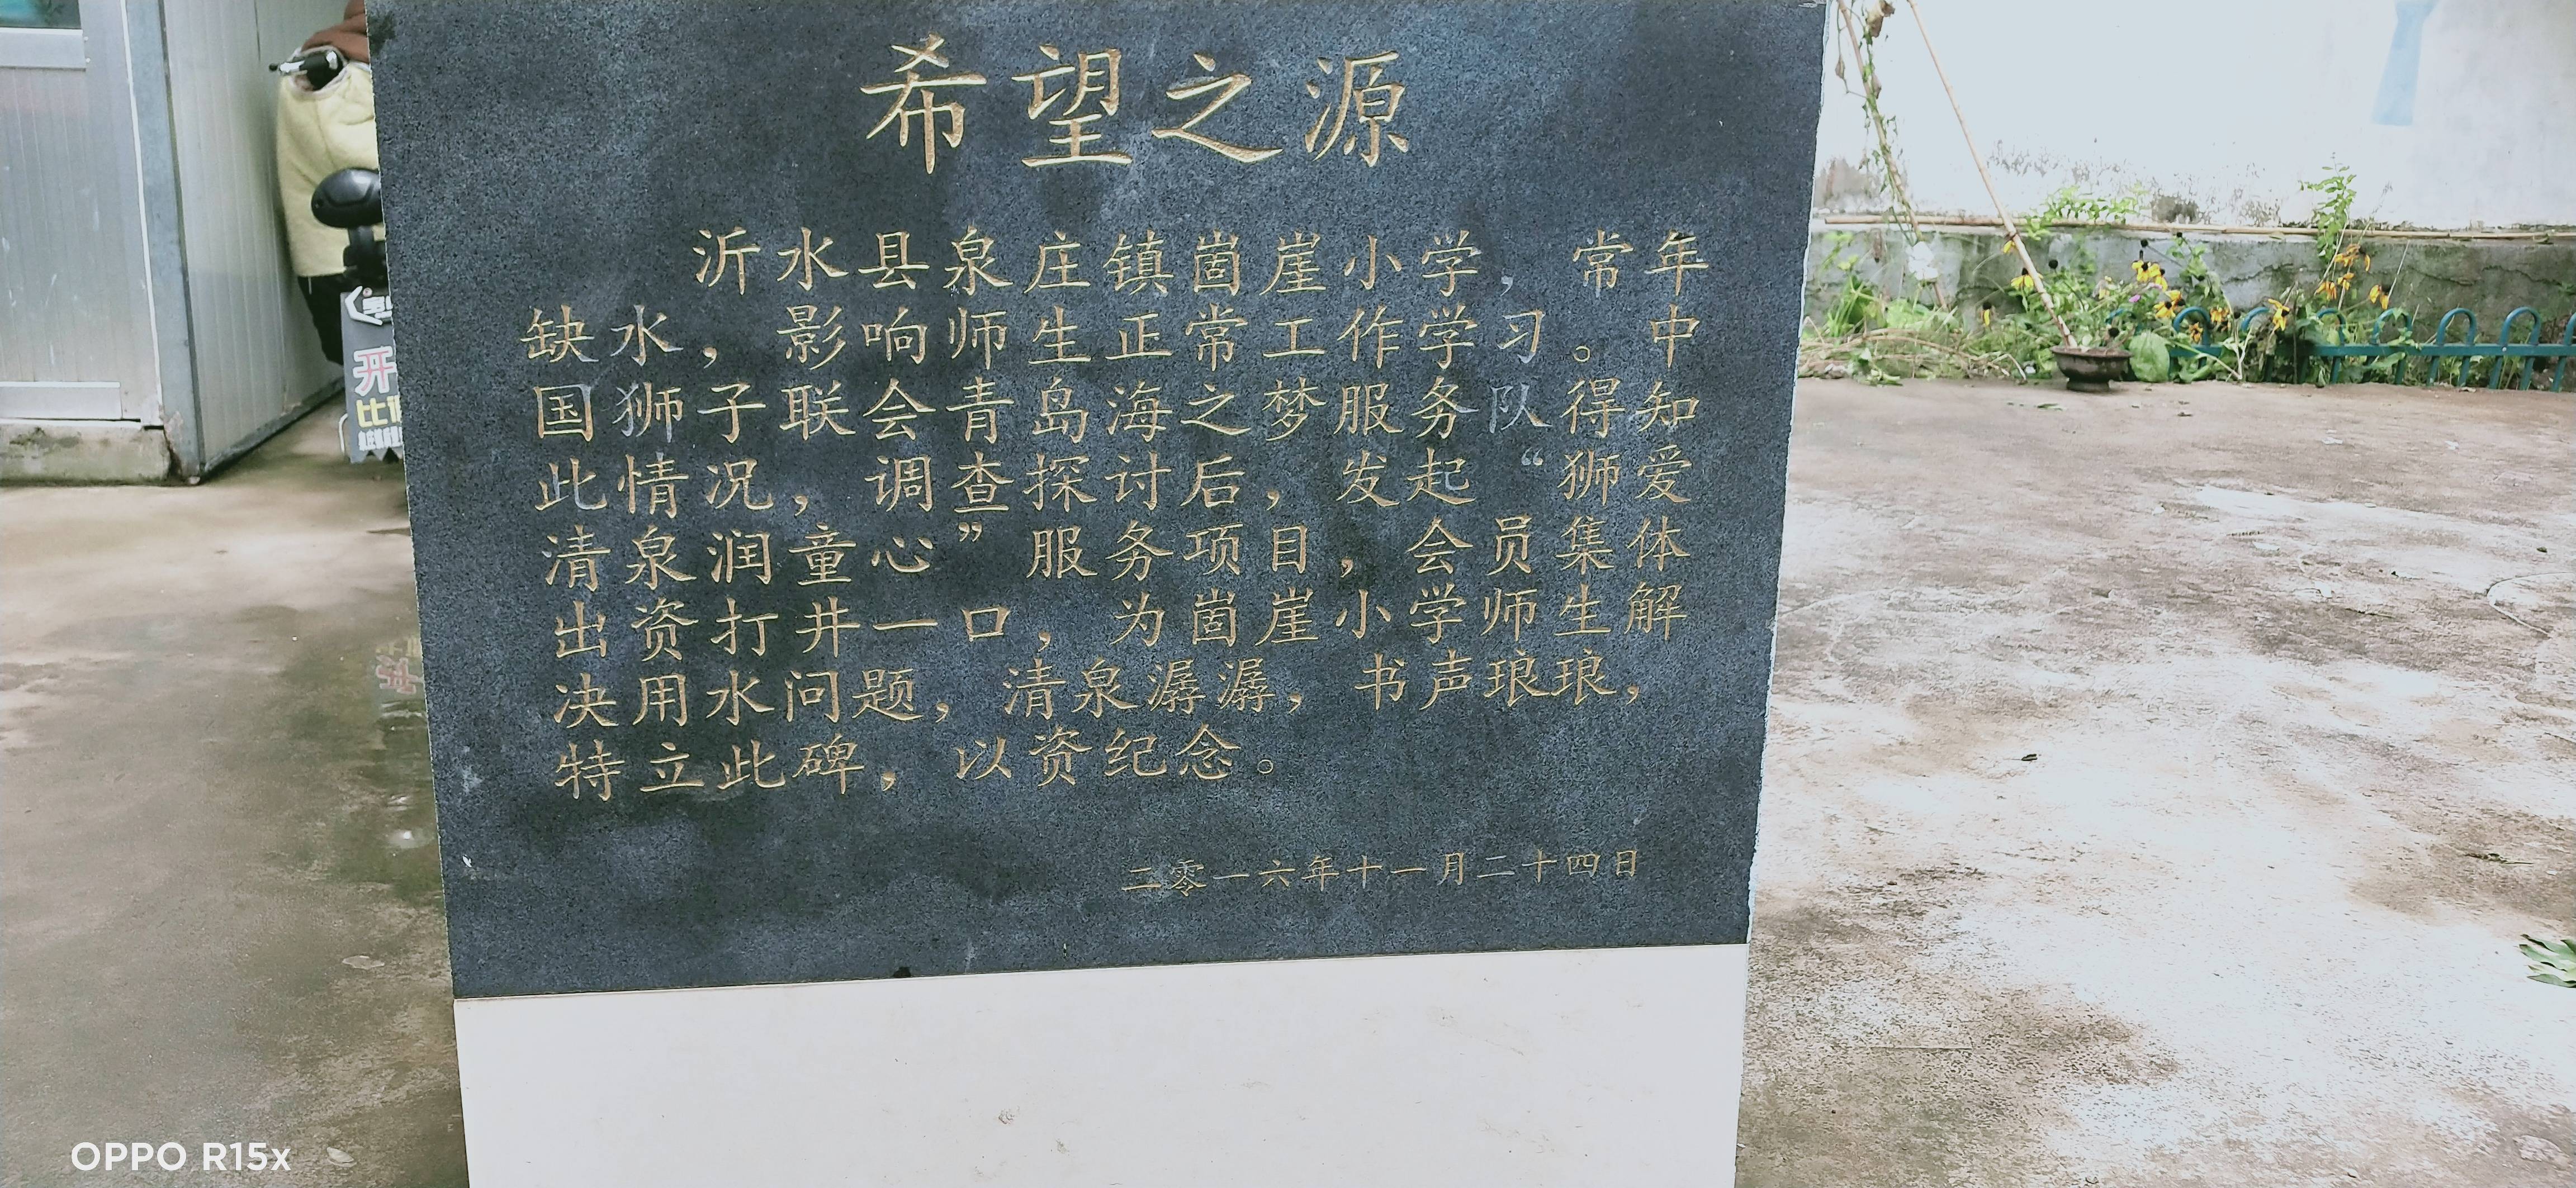 希望之源
沂水县泉庄镇崮崖小学，常年
缺水，影响师生正常工作学习。中
国狮子联会青岛海之梦服务队得知
此情况，调查探讨后，发起“狮爱
清泉润童心”服务项目，会员集体
出资打井一口，为崮崖小学师生解
决用水问题，清泉潺潺，书声琅琅，
特立此碑，以资纪念。
二零一六年十一月二十四日
开
比
OPPO R15x